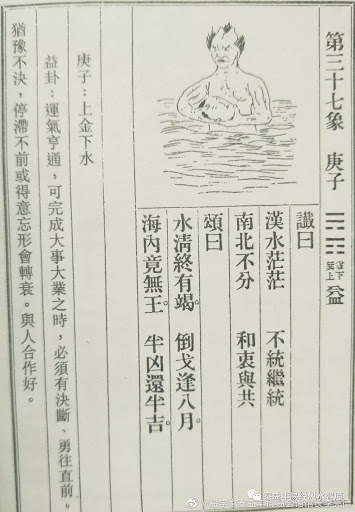 第三十七象 庚子 益
震下
巽上
讖曰
漢水茫茫 不統繼統
南北不分 和衷與共
頌曰
水清終有竭 倒戈逢八月。
海內竟無王。 半凶還半吉。
庚子：上金下水
益卦：運氣亨通，可完成大事大業之時，必須有決斷、勇往直前。
猶豫不決，停滯不前或得意忘形會轉衰。與人合作好。